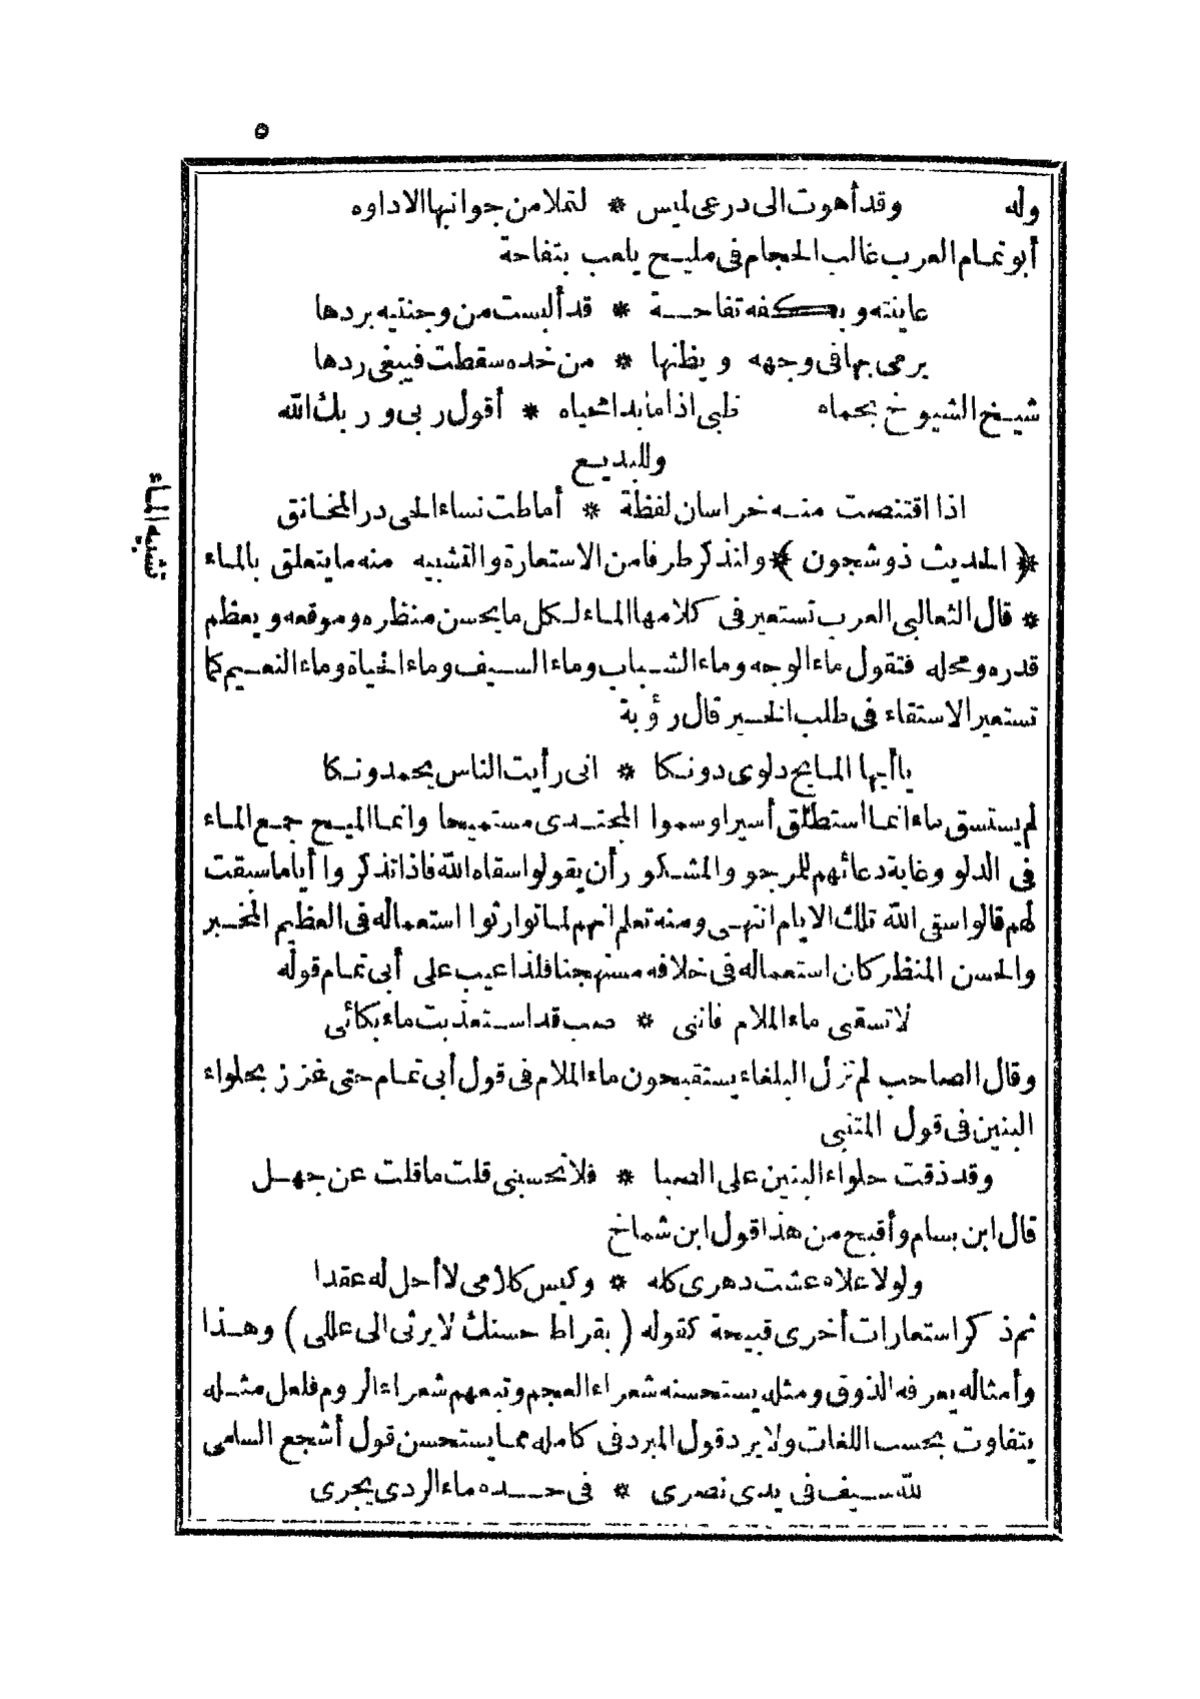 ٥
وله وقد أهوت الى درعى لميس * لتملا من جوانبها الاداوه
أبو تمام العرب غالب الحجام فى مليح يلعب بتفاحة
عاينته و بكفه تفاحة * قد ألبست من وجنتيه بردها
يرمى بها فى وجهه و يظنها * من خده سقطت فيبغى ردها
شيخ الشيوخ بحماه ظبى اذا ما بدا محياه * أقول ربى و ربك الله
وللبديع
اذا اقتنصت منه خراسان لفظة * أماطت نساء الحى در المخانق
﴿ الحديث ذو شجون ﴾ ولنذكر طرفا من الاستعارة والتشبيه منه ما يتعلق بالماء
تشبيه الماء
* قال الثعالبى العرب تستعير فى كلامها الماء لكل ما يحسن منظره وموقعه و يعظم
قدره ومحله فتقول ماء الوجه وماء الشباب وماء السيف وماء الحياة وماء النعيم كما
تستعير الاستقاء فى طلب الخير قال رؤبة
يا أيها المايح دلوى دونكا * انى رأيت الناس يحمدونكا
لم يستسق ماء انما استطلق أسيرا وسموا المجتدى مستميحا وانما الميح جمع الماء
فى الدلو وغاية دعائهم للرجو والمشكور أن يقولوا سقاه الله فاذا تذكروا أياما سبقت
لهم قالوا سقى الله تلك الايام انتهى ومنه تعلم انهم لما توارثوا استعماله فى العظيم المخبر
والحسن المنظر كان استعماله فى خلافه مستهجنا فلذا عيب على أبى تمام قوله
لا تسقنى ماء الملام فاننى * صب قد استعذبت ماء بكائى
وقال الصاحب لم تزل البلغاء يستقبحون ماء الملام فى قول أبى تمام حتى عزز بحلواء
البنين فى قول المتنبى
وقد ذقت حلواء البنين على الصبا * فلا تحسبنى قلت ما قلت عن جهل
قال ابن بسام وأقبح من هذا قول ابن شماخ
ولولا علاه عشت دهرى كله * وكيس كلامى لا أحل له عقدا
ثم ذكر استعارات أخرى قبيحة كقوله ( بقراط حسنك لا يرثى الى عللى ) وهذا
وأمثاله يعرفه الذوق ومثله يستحسنه شعراء العجم وتبعهم شعراء الروم فلعل مثله
يتفاوت بحسب اللغات ولا يرد قول المبرد فى كامله مما يستحسن قول أشجع السلمى
لله سيف فى يدى نصرى * فى حده ماء الردى يجرى